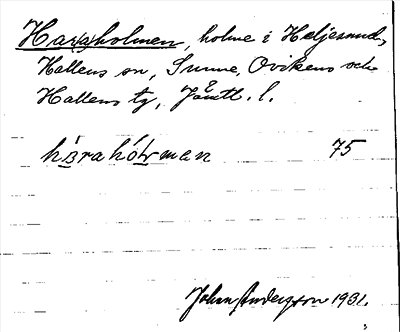 Har(a)holmen, holme i Heljesund,
Hallens sn, Sunne, Ovikens och
Hallens tg, Jämtl. l.
hàrahól̵man 75
Johan Andersson 1931.